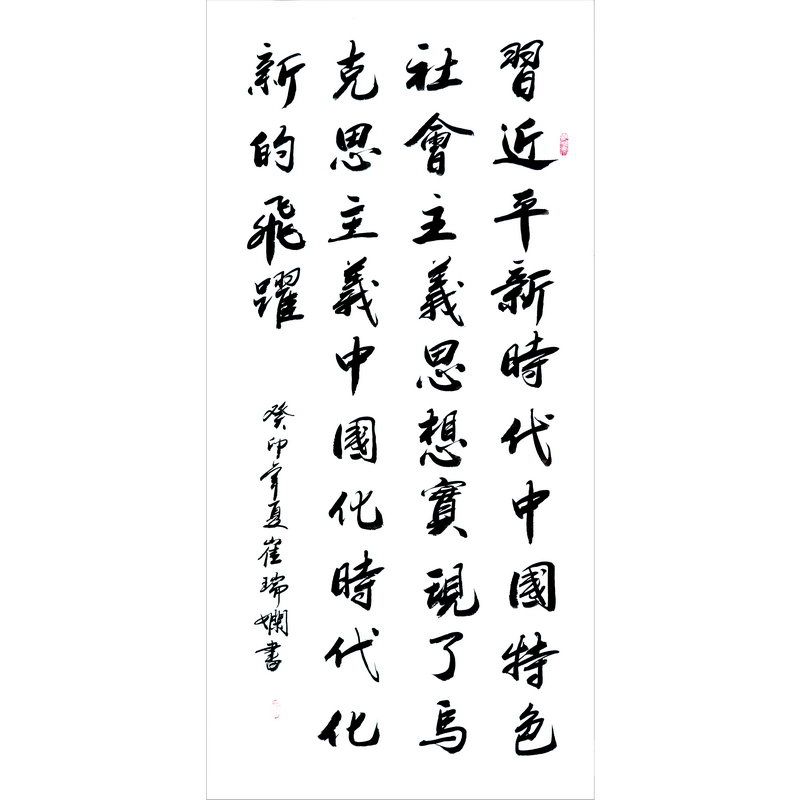 習近平新時代中國特色
社會主義思想實現了馬
克思主義中國化時代化
新的飛躍
癸卯年夏崔瑞嫻書